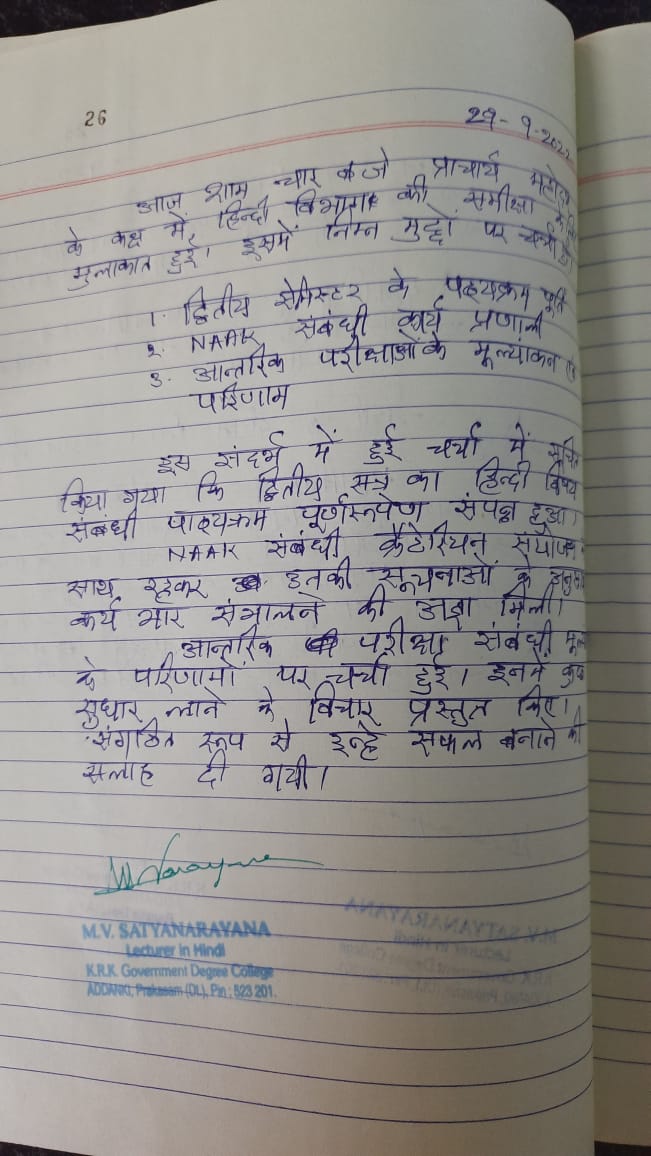 26
29-9-2022
आज शाम चार बजे प्राचार्य महोदय
के कक्ष में, हिन्दी विभाग की समीक्षा के लिए
मुलाकात हुई। इसमें निम्न मुद्दों पर चर्चा हुई।
1. द्वितीय सेमिस्टर के पाठ्यक्रम पूर्ति
2. NAAK संबंधी कार्य प्रणाली
3. आन्तरिक परीक्षाओं के मूल्यांकन एवं
परिणाम
इस संदर्भ में हुई चर्चा में सूचित
किया गया कि द्वितीय सत्र का हिन्दी विषय
संबंधी पाठ्यक्रम पूर्णरूपेण संपन्न हुआ।
NAAK संबंधी क्रैटेरियन संयोजक
साथ रहकर उनकी सूचनाओं के अनुसार
कार्य भार संभालने की आज्ञा मिली।
आन्तरिक परीक्षा संबंधी
के परिणामों पर चर्चा हुई। इनमें कुछ
सुधार लाने के विचार प्रस्तुत किए।
संगठित रूप से इन्हे सफल बनाने की
सलाह दी गयी।
M.V. SATYANARAYANA
Lecturer in Hindi
K.R.K. Government Degree College
ADDANKI, Prakasam (Dt.), Pin : 523 201.